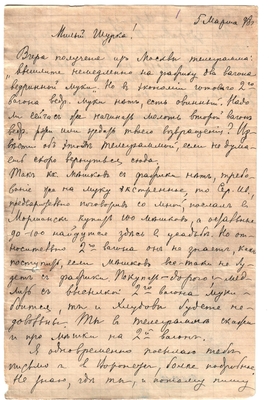 5 Марта 98
Милый Шурка!
Вчера получена из Москвы телеграмма:
вышлите немедленно на фабрику два вагона
муки. Но в экономии готового 2го
вагона муки нет, есть овинный. Надо
ли сейчас же начинать молоть второй вагон
или ждать твоего возвращения? Из-
вести об этом телеграммой, если не дума-
ешь скоро вернуться сюда.
Так как мешков с фабрики нет, требо-
вание же на муку экстренное, то
предварительно поговорив со мной, послал в
купить 100 мешков, а остальные
до 100 найдутся здесь в усадьбе. Но от-
носительно 2го вагона он не знает, как
поступить, если мешков все-таки не бу-
дет с фабрики. Покупать дорого, а мед-
лить с высылкой 2го вагона муки
боится, ты и Хлудовы будете не-
довольны. Ты в телеграмме скажи
и про мешки на 2й вагон.
Я одновременно посылаю тебе
письмо и в Воронеж, более подробное.
Не знаю, где ты, и потому пишу